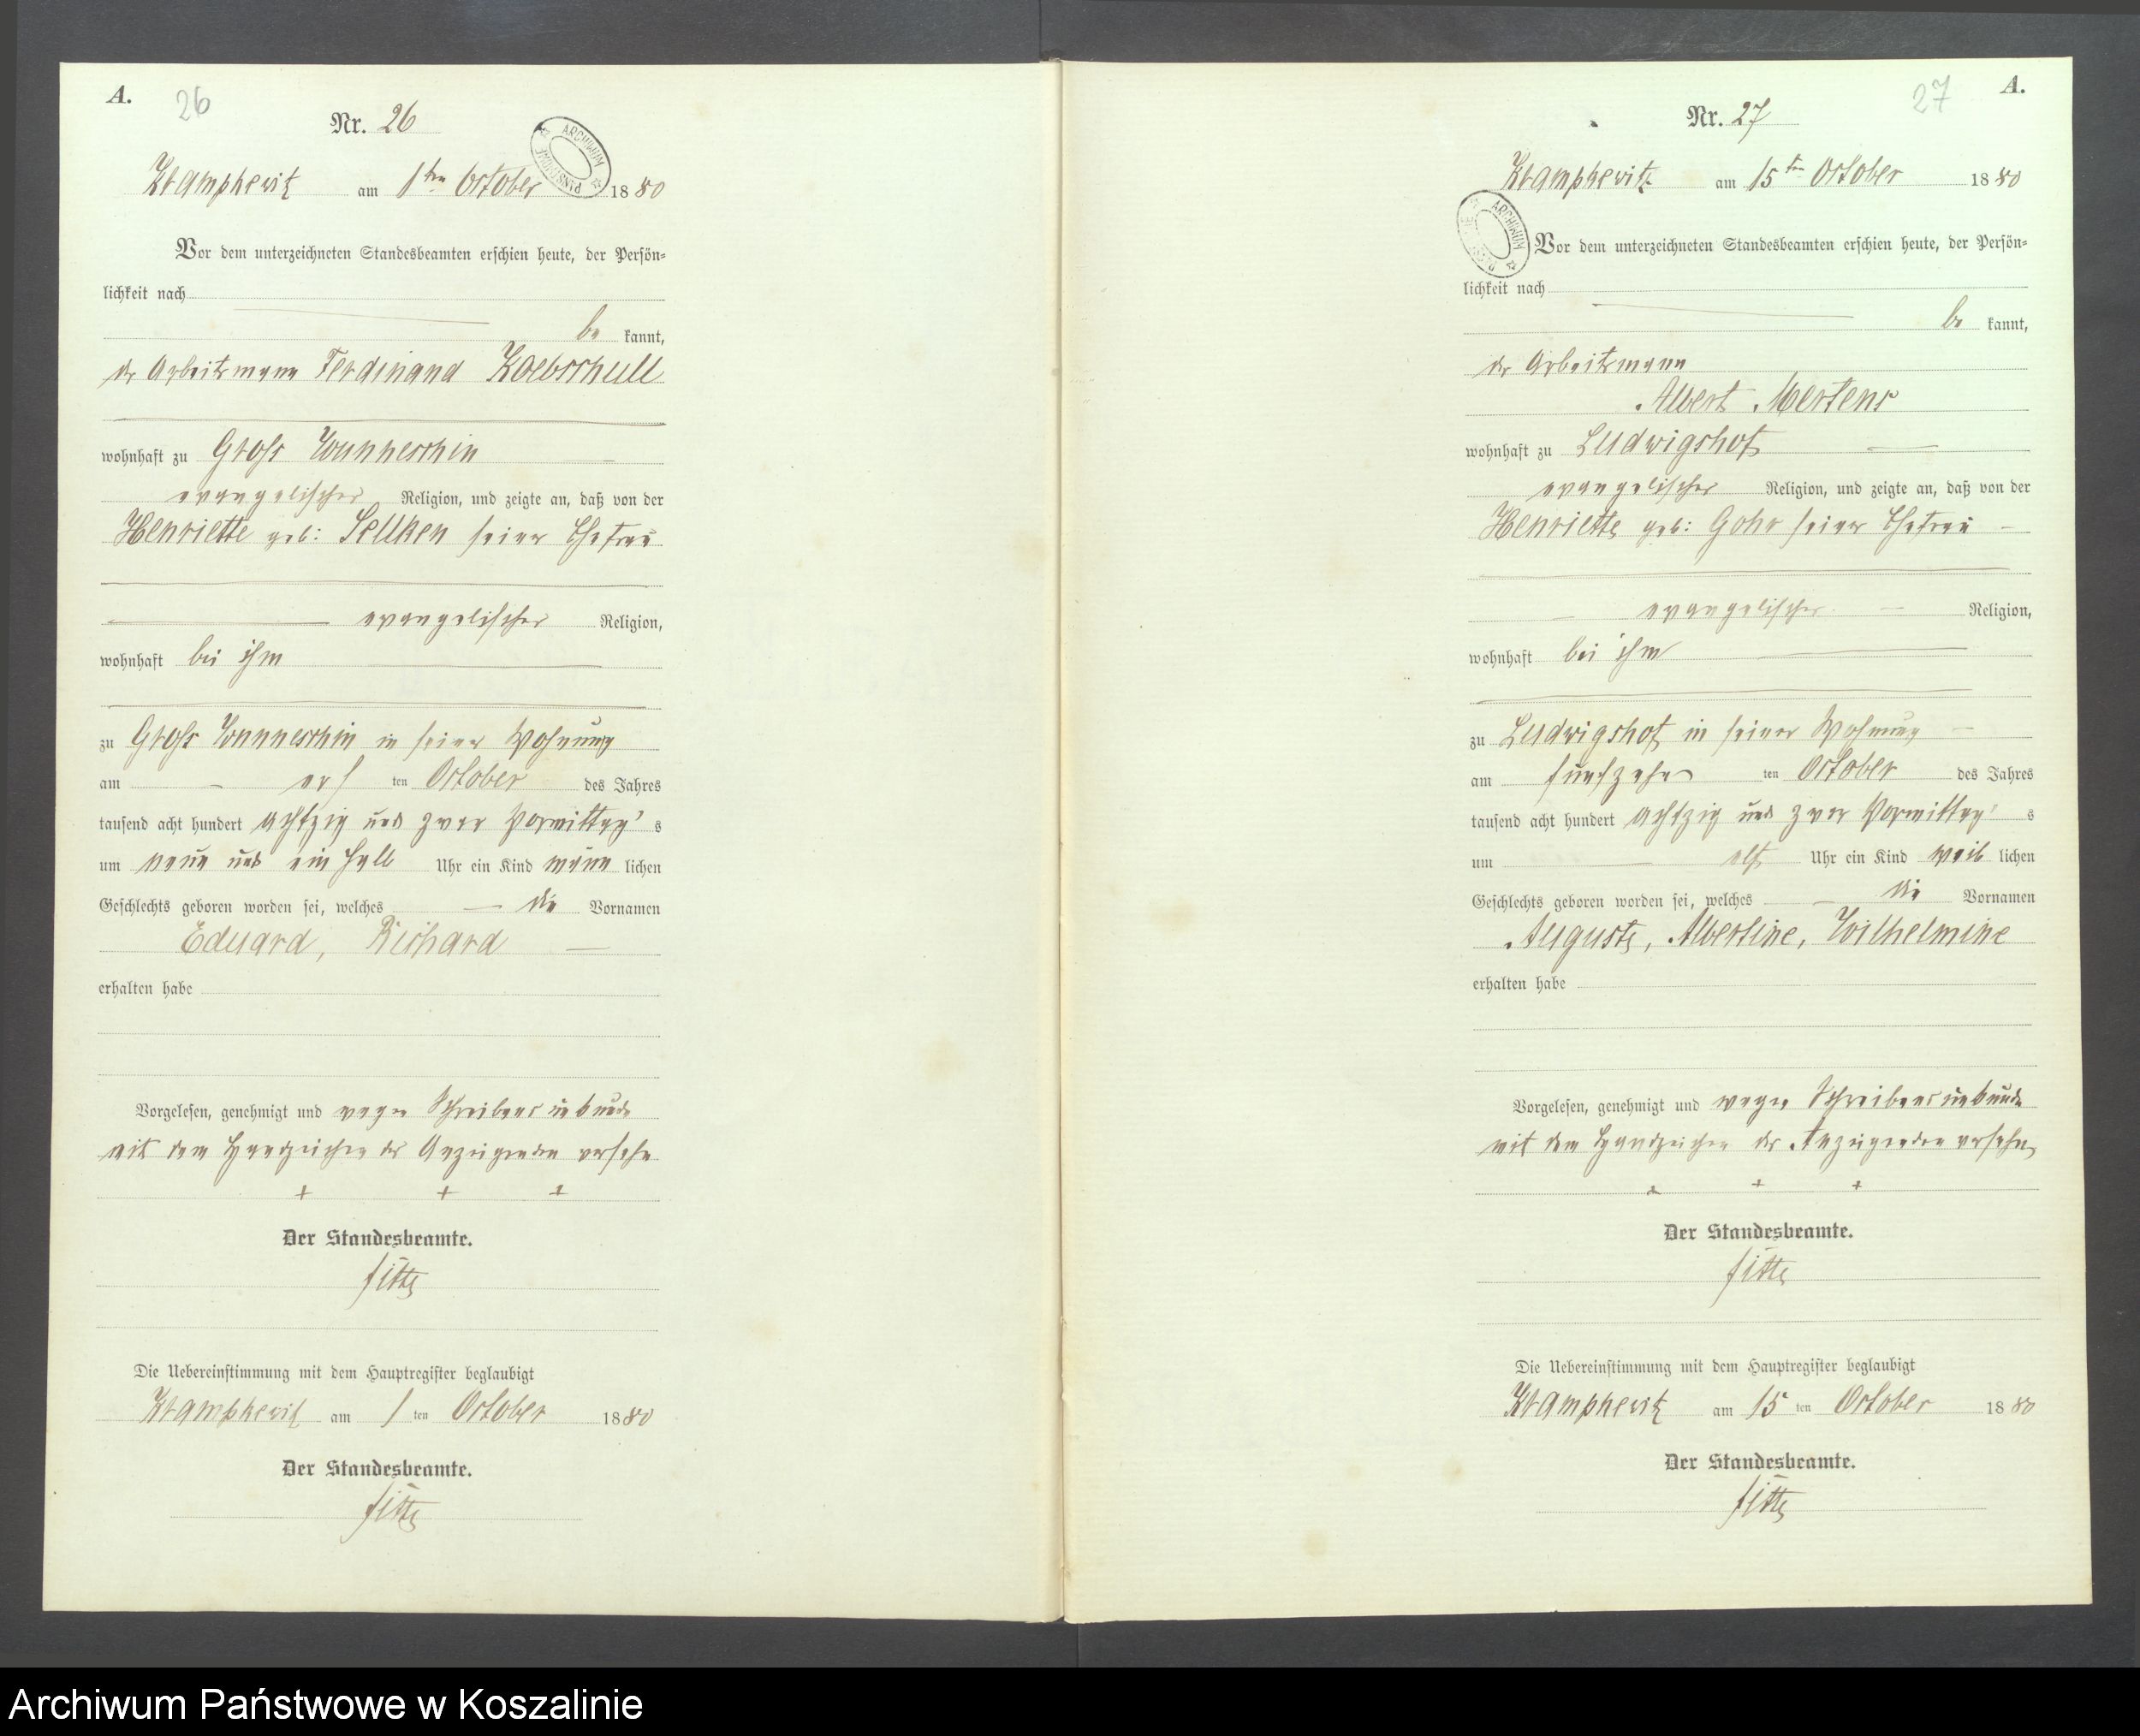 A.
26
Nr. 26
ARCHIWUM PAŃSTWOWE
Krampkewitz am 1ten October 1880
Vor dem unterzeichneten Standesbeamten erschien heute, der Persön-
lichkeit nach
be kannt,
der Arbeitsmann Ferdinand Koebschull
wohnhaft zu Gross Wunneschin
evangelischer Religion, und zeigte an, daß von der
Henriette geb: Sellken seiner Ehefrau
evangelischer Religion,
wohnhaft bei ihm
zu Gross Wunneschin in seiner Wohnung
am ersten October des Jahres
tausend acht hundert achtzig und zwar Vormittag's
um neun und ein halb Uhr ein Kind männlichen
Geschlechts geboren worden sei, welches die Vornamen
Eduard, Richard
erhalten habe
Vorgelesen, genehmigt und wegen Schreibensunkunde
mit dem Handzeichen des Anzeigenden versehen
+ + +
Der Standesbeamte.
Fitte
Die Uebereinstimmung mit dem Hauptregister beglaubigt
Krampkewitz am 1ten October 1880
Der Standesbeamte.
Fitte
27
A.
Nr. 27
Krampkewitz am 15ten October 1880
ARCHIWUM
Vor dem unterzeichneten Standesbeamten erschien heute, der Persön-
lichkeit nach
be kannt,
der Arbeitsmann
Albert Mertens
wohnhaft zu Ludwigshof
evangelischer Religion, und zeigte an, daß von der
Henriette geb: Gohr seiner Ehefrau
evangelischer Religion,
wohnhaft bei ihm
zu Ludwigshof in seiner Wohnung
am fünfzehnten October des Jahres
tausend acht hundert achtzig und zwar Vormittag's
um elf Uhr ein Kind weiblichen
Geschlechts geboren worden sei, welches die Vornamen
Auguste, Albertine, Wilhelmine
erhalten habe
Vorgelesen, genehmigt und wegen Schreibensunkunde
mit dem Handzeichen des Anzeigenden versehen
+ + +
Der Standesbeamte.
Fitte
Die Uebereinstimmung mit dem Hauptregister beglaubigt
Krampkewitz am 15ten October 1880
Der Standesbeamte.
Fitte
Archiwum Państwowe w Koszalinie